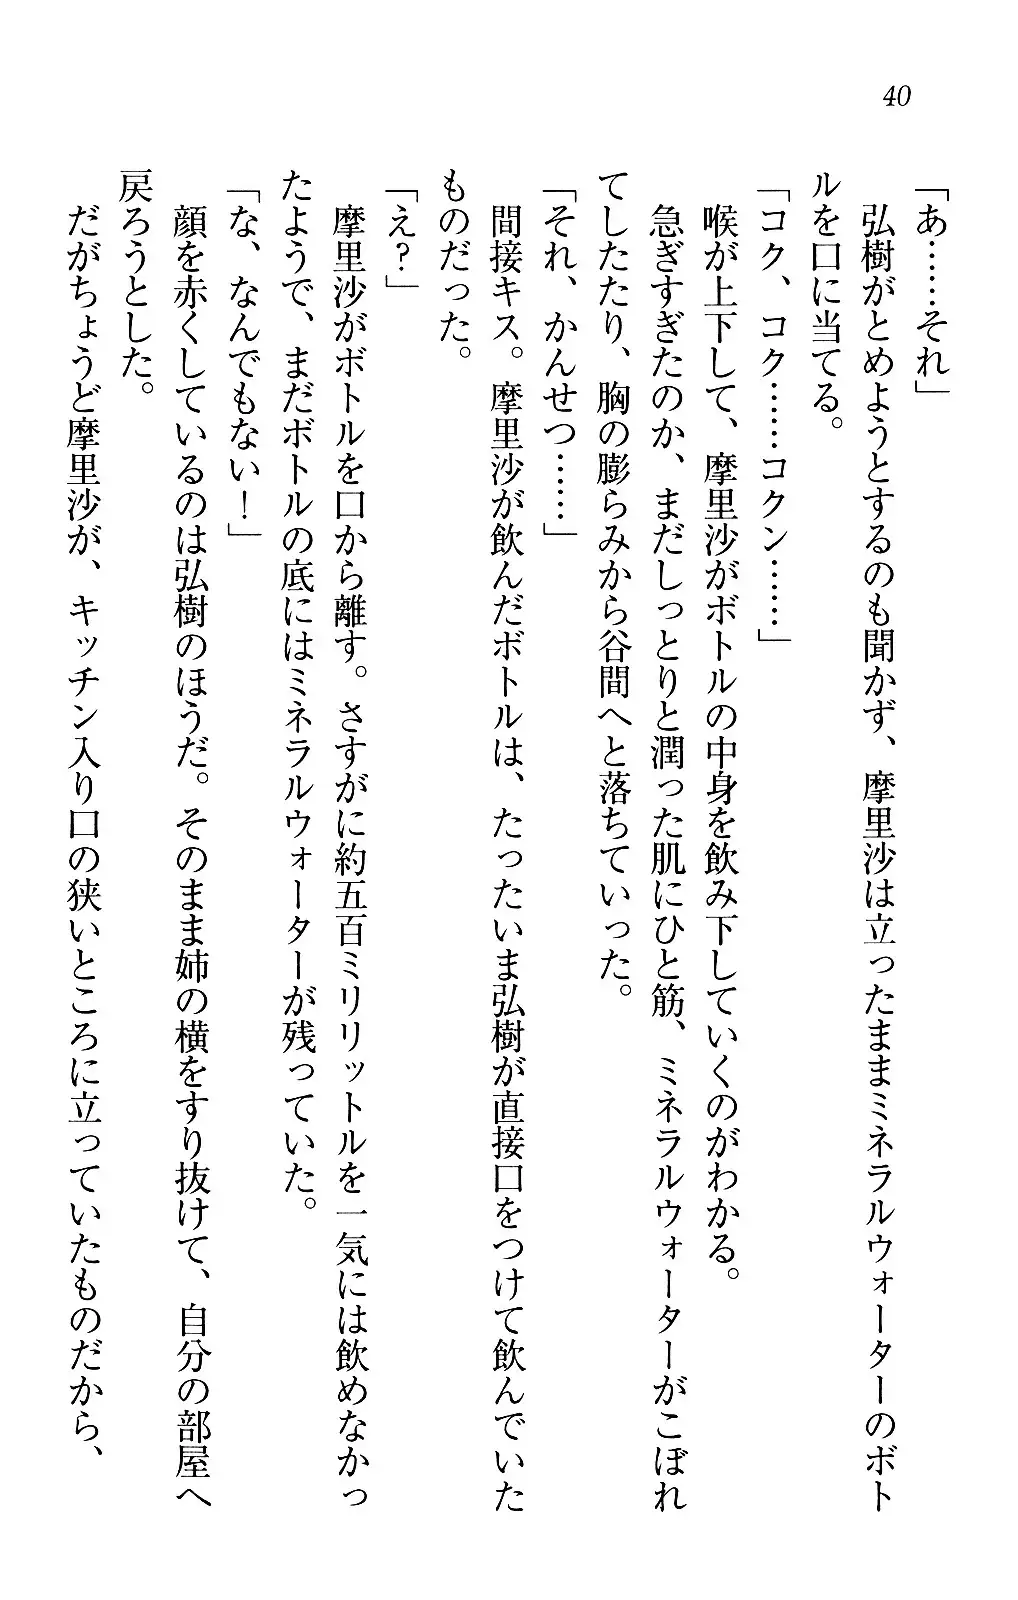 40
「あ……それ」
　弘樹がとめようとするのも聞かず、摩里沙は立ったままミネラルウォーターのボト
ルを口に当てる。
「コク、コク……コクン……」
　喉が上下して、摩里沙がボトルの中身を飲み下していくのがわかる。
　急ぎすぎたのか、まだしっとりと潤った肌にひと筋、ミネラルウォーターがこぼれ
てしたたり、胸の膨らみから谷間へと落ちていった。
「それ、かんせつ……」
　間接キス。摩里沙が飲んだボトルは、たったいま弘樹が直接口をつけて飲んでいた
ものだった。
「え？」
　摩里沙がボトルを口から離す。さすがに約五百ミリリットルを一気には飲めなかっ
たようで、まだボトルの底にはミネラルウォーターが残っていた。
「な、なんでもない！」
　顔を赤くしているのは弘樹のほうだ。そのまま姉の横をすり抜けて、自分の部屋へ
戻ろうとした。
　だがちょうど摩里沙が、キッチン入り口の狭いところに立っていたものだから、